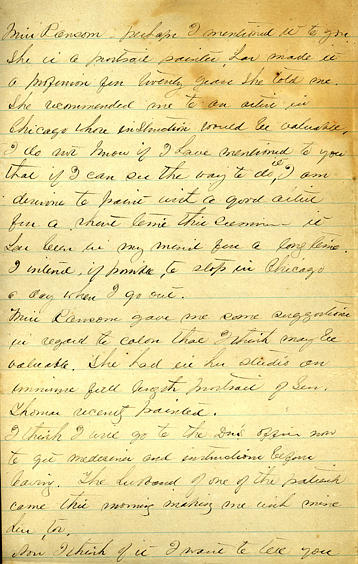 Miss Ransom - perhaps I mentioned it to you
She is a portrait painter has made it
a profession for twenty years she told me.
She recommended me to an artist in
Chicago whose instruction would be valuable,
I do not know if I have mentioned to you
that if I can see the way to do it, I am
desirous to paint with a good artist
for a short time this summer it
has been in my mind for a long time.
I intend, if possible, to stop in Chicago
a day when I go out.
Miss Ransom gave me some suggestions
in regard to colors that I think may be
valuable. She had in her studio an
immense full length portrait of Gen.
Thomas recently painted.
I think I will go to the Drs office now
to get medicine and instructions before
leaving. The husband of one of the patients
came this morning making me wish mine
did, too.
Now I think of it I want to tell you